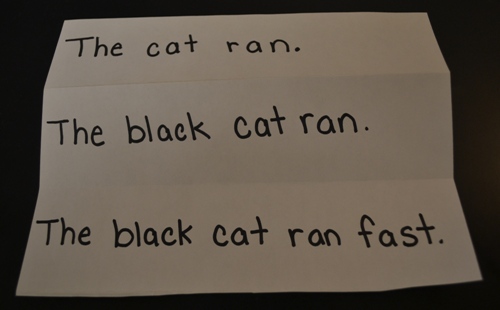 The cat ran.
The black cat ran.
The black cat ran fast.